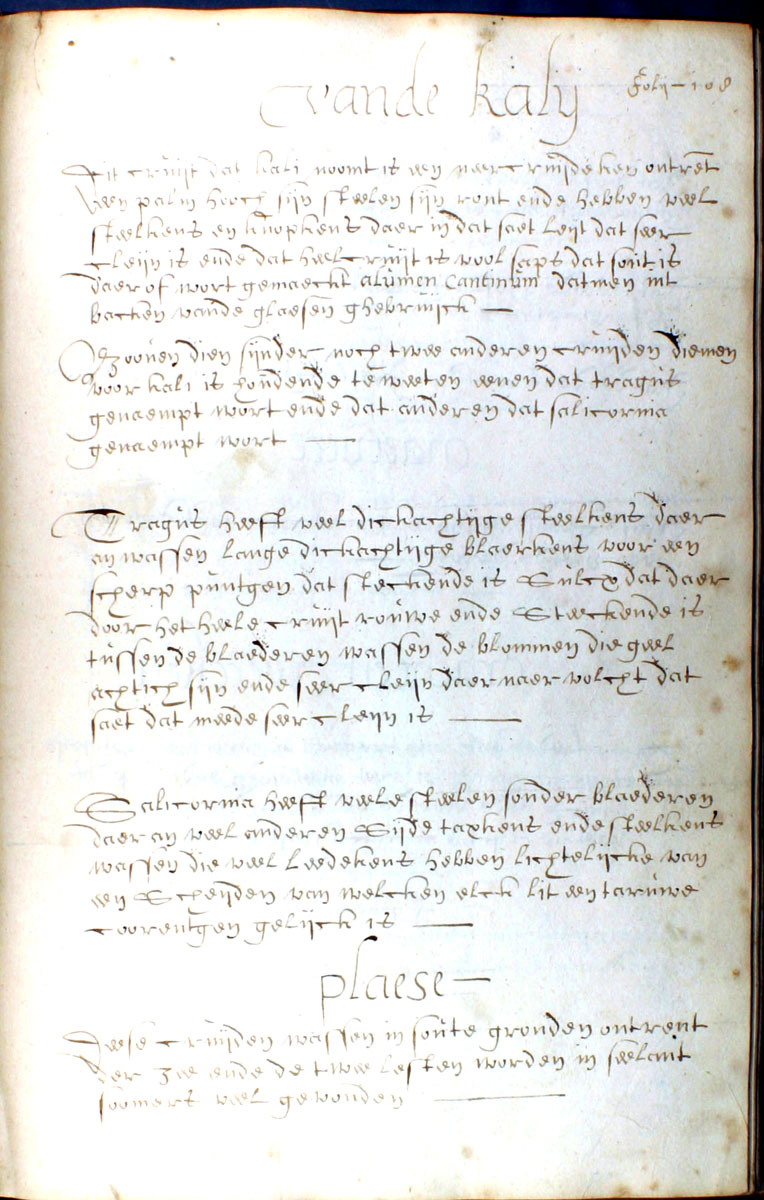 vande kalij
folij - 108
Dit cruijt dat kali noomt is een neer cruijdeken ontrent
een palm hooch sijn steelen sijn ront ende hebben veel
steelkens en knopkens daer in dat saet leijt dat seer
cleijn is ende dat heel cruijt is vool saps dat sout is
daer of wort gemaeckt alumen Catinum datmen int
backen vande glaesen ghebruijck
boouen dien sijnder noch twee anderen cruijden diemen
voor kali is houdende te weeten eenen dat tragus
genaempt wort ende dat anderen dat salicornia
genaempt wort
Tragus heeft veel dickachtijge steelkens daer
an wassen lange dickachtijge blaerkens voor een
scherp puntgen dat steckende is Sulcx dat daer
door het heele cruijt rouwe ende Steeckende is
tussen de blaederen wassen de blommen die geel
achtich sijn ende seer cleijn daer naer volcht dat
saet dat meede seer cleijn is
Salicornia heeft veele steelen sonder blaederen
daer an veel anderen Sijde taxkens ende steelkens
wassen die veel leedekens hebben lichtelijcke van
een Scheijden van welcken elck lit een taruwe
coorentgen gelijck is
plaese
Deese cruijden wassen in soute gronden ontrent
der zee ende de twee lesten worden in seelant
soomers veel gevonden